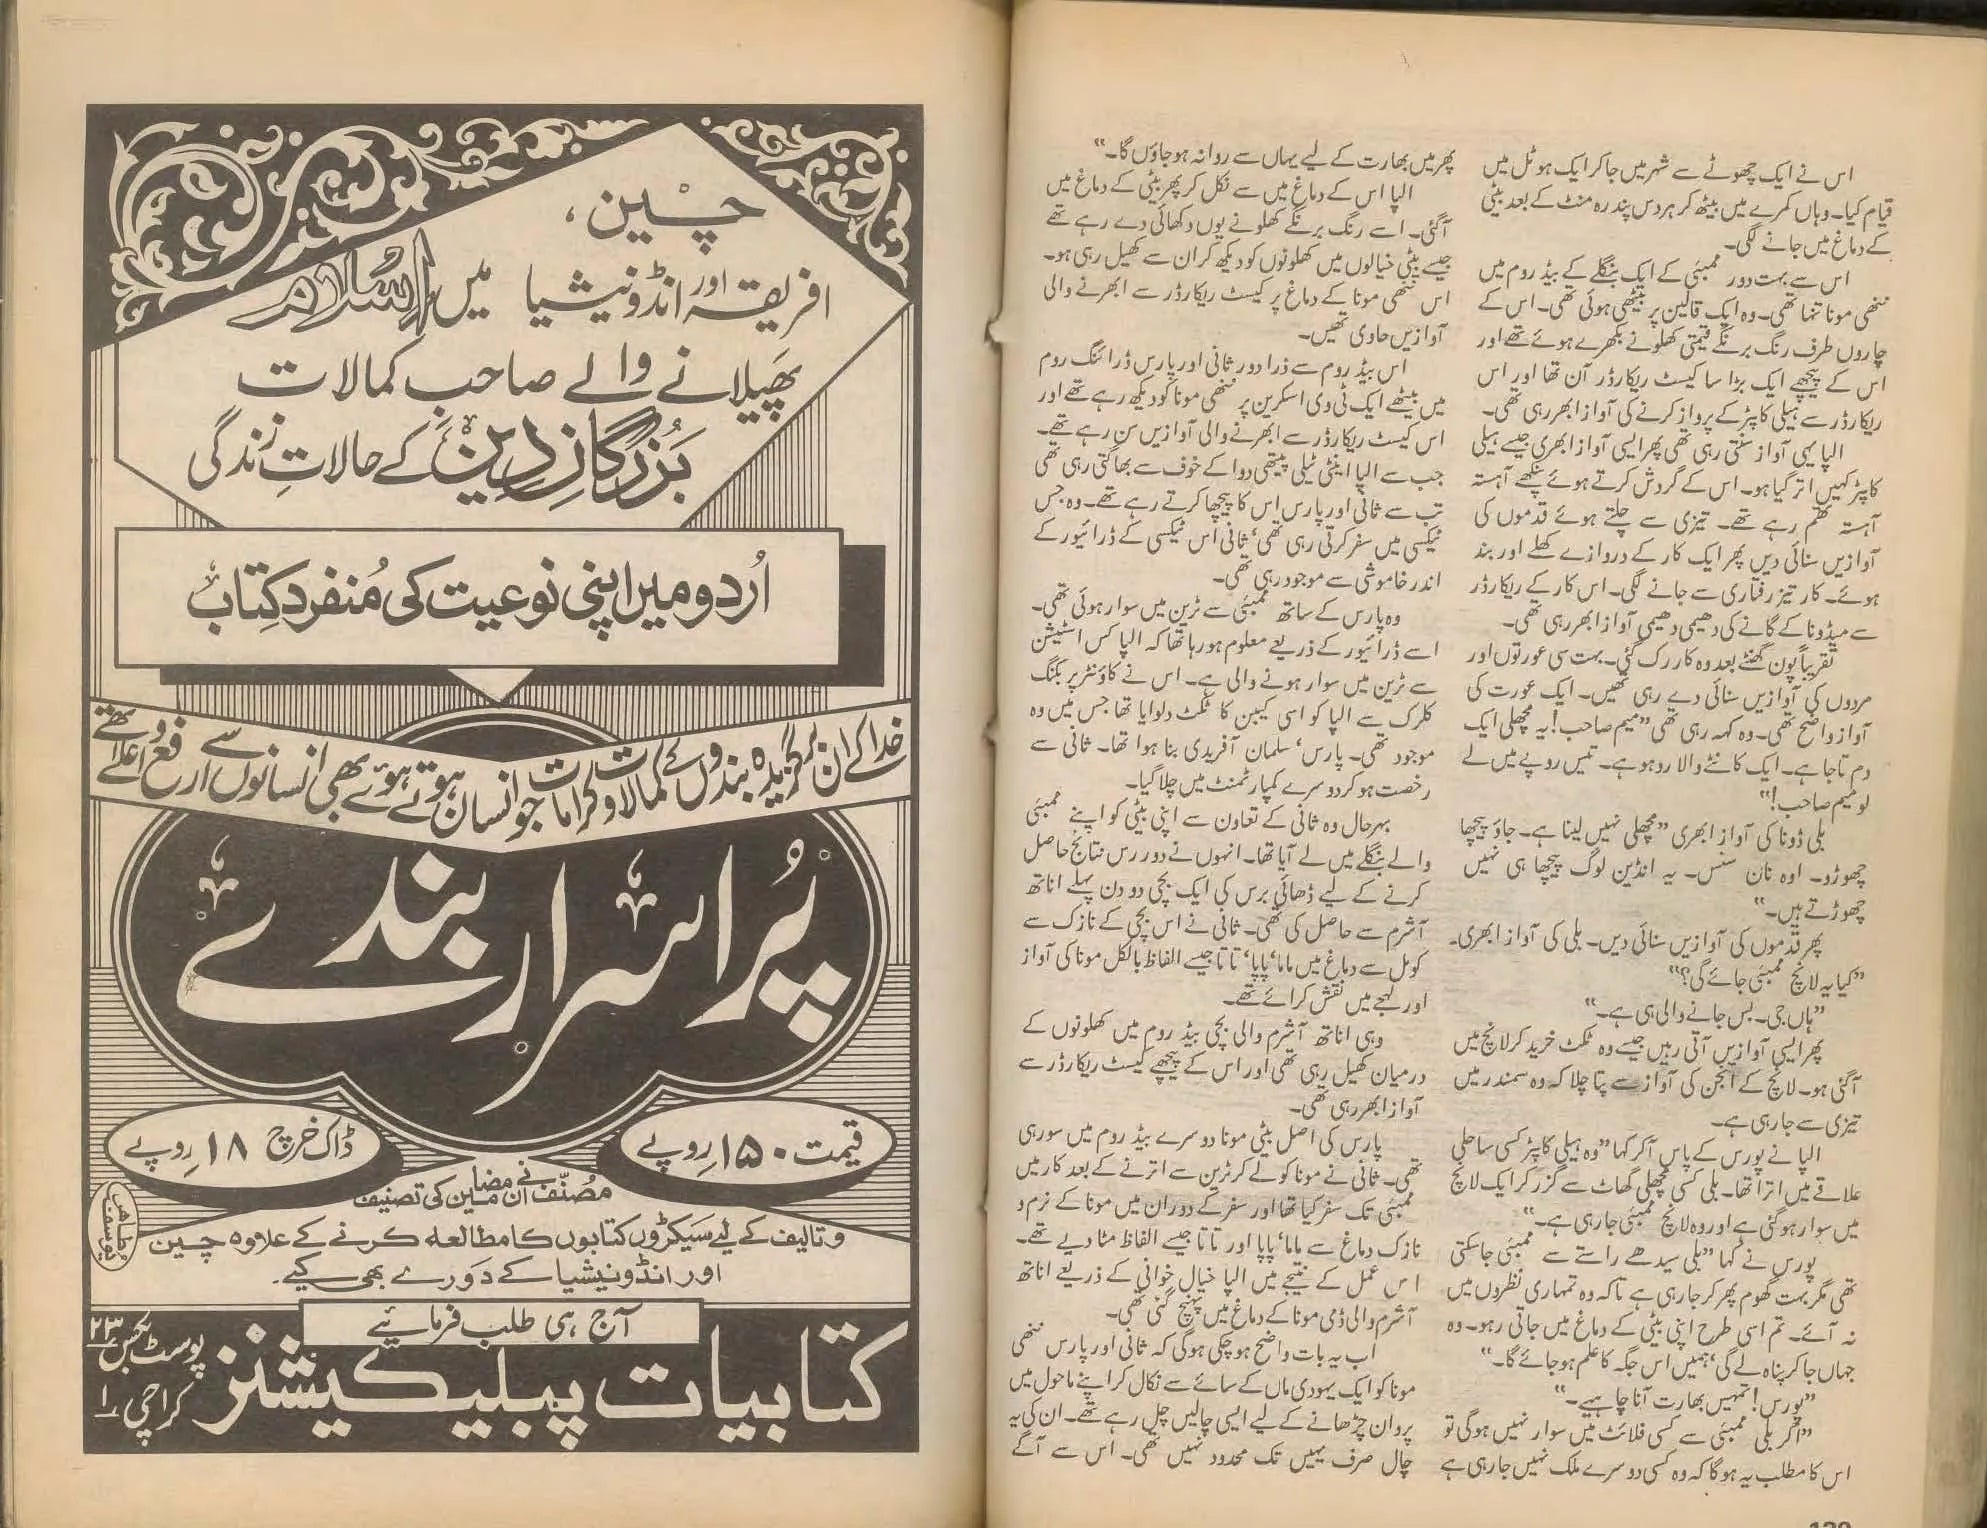 اس نے ایک چھوٹے سے شہر میں جا کر ایک ہوٹل میں
قیام کیا۔ وہاں کمرے میں بیٹھ کر ہر دس پندرہ منٹ کے بعد بیٹی
کے دماغ میں جانے لگی۔
اس سے بہت دور ممبئی کے ایک بنگلے کے بیڈ روم میں
ننھی مونا تنہا تھی۔ وہ ایک قالین پر بیٹھی ہوئی تھی۔ اس کے
چاروں طرف رنگ برنگے قیمتی کھلونے بکھرے ہوئے تھے اور
اس کے پیچھے ایک بڑا سا کیسٹ ریکارڈر آن تھا اور اس
ریکارڈر سے ہیلی کاپٹر کے پرواز کرنے کی آواز ابھر رہی تھی۔
الپا یہی آواز سنتی رہی تھی پھر ایسی آواز ابھری جیسے ہیلی
کاپٹر کہیں اتر گیا ہو۔ اس کے گردش کرتے ہوئے پنکھے آہستہ
آہستہ تھم رہے تھے۔ تیزی سے چلتے ہوئے قدموں کی
آوازیں سنائی دیں پھر ایک کار کے دروازے کھلے اور بند
ہوئے۔ کار تیز رفتاری سے جانے لگی۔ اس کار کے ریکارڈر
سے میڈونا کے گانے کی دھیمی دھیمی آواز ابھر رہی تھی۔
تقریباً پون گھنٹے بعد وہ کار رک گئی۔ بہت سی عورتوں اور
مردوں کی آوازیں سنائی دے رہی تھیں۔ ایک عورت کی
آواز واضح تھی۔ وہ کہہ رہی تھی ”میم صاحب! یہ مچھلی ایک
دم تاجا ہے۔ ایک کانٹے والا روہو ہے۔ تیس روپے میں لے
لو میم صاحب!“
بلی ڈونا کی آواز ابھری ”مچھلی نہیں لینا ہے۔ جاؤ پیچھا
چھوڑو۔ اوہ نان سنس۔ یہ انڈین لوگ پیچھا ہی نہیں
چھوڑتے ہیں۔“
پھر قدموں کی آوازیں سنائی دیں۔ بلی کی آواز ابھری۔
”کیا یہ لانچ ممبئی جائے گی؟“
”ہاں جی۔ بس جانے والی ہی ہے۔“
پھر ایسی آوازیں آتی رہیں جیسے وہ ٹکٹ خرید کر لانچ میں
آ گئی ہو۔ لانچ کے انجن کی آواز سے پتا چلا کہ وہ سمندر میں
تیزی سے جا رہی ہے۔
الپا نے پورس کے پاس آ کر کہا ”وہ ہیلی کاپٹر کسی ساحلی
علاقے میں اترا تھا۔ بلی کسی مچھلی گھاٹ سے گزر کر ایک لانچ
میں سوار ہو گئی ہے اور وہ لانچ ممبئی جا رہی ہے۔“
پورس نے کہا ”بلی سیدھے راستے سے ممبئی جا سکتی
تھی مگر بہت گھوم پھر کر جا رہی ہے تاکہ وہ تمہاری نظروں میں
نہ آئے۔ تم اسی طرح اپنی بیٹی کے دماغ میں جاتی رہو۔ وہ
جہاں جا کر پناہ لے گی، ہمیں اس جگہ کا علم ہو جائے گا۔“
”پورس! تمہیں بھارت آنا چاہیے۔“
”اگر بلی ممبئی سے کسی فلائٹ میں سوار نہیں ہو گی تو
اس کا مطلب یہ ہو گا کہ وہ کسی دوسرے ملک نہیں جا رہی ہے
پھر میں بھارت کے لیے یہاں سے روانہ ہو جاؤں گا۔“
الپا اس کے دماغ میں سے نکل کر پھر بیٹی کے دماغ میں
آ گئی۔ اسے رنگ برنگے کھلونے یوں دکھائی دے رہے تھے
جیسے بیٹی خیالوں میں کھلونوں کو دیکھ کر ان سے کھیل رہی ہو۔
اس ننھی مونا کے دماغ پر کیسٹ ریکارڈر سے ابھرنے والی
آوازیں حاوی تھیں۔
اس بیڈ روم سے ذرا دور ثانی اور پارس ڈرائنگ روم
میں بیٹھے ایک ٹی وی اسکرین پر ننھی مونا کو دیکھ رہے تھے اور
اس کیسٹ ریکارڈر سے ابھرنے والی آوازیں سن رہے تھے۔
جب سے الپا اینٹی ٹیلی پیتھی دوا کے خوف سے بھاگتی رہی تھی
تب سے ثانی اور پارس اس کا پیچھا کرتے رہے تھے۔ وہ جس
ٹیکسی میں سفر کرتی رہی تھی، ثانی اس ٹیکسی کے ڈرائیور کے
اندر خاموشی سے موجود رہی تھی۔
وہ پارس کے ساتھ ممبئی سے ٹرین میں سوار ہوئی تھی۔
اسے ڈرائیور کے ذریعے معلوم ہو رہا تھا کہ الپا کس اسٹیشن
سے ٹرین میں سوار ہونے والی ہے۔ اس نے کاؤنٹر پر بکنگ
کلرک سے الپا کو اسی کیبن کا ٹکٹ دلوایا تھا جس میں وہ
موجود تھی۔ پارس، سلمان آفریدی بنا ہوا تھا۔ ثانی سے
رخصت ہو کر دوسرے کمپارٹمنٹ میں چلا گیا۔
بہرحال وہ ثانی کے تعاون سے اپنی بیٹی کو اپنے ممبئی
والے بنگلے میں لے آیا تھا۔ انہوں نے دور رس نتائج حاصل
کرنے کے لیے ڈھائی برس کی ایک بچی دو دن پہلے اناتھ
آشرم سے حاصل کی تھی۔ ثانی نے اس بچی کے نازک سے
کومل سے دماغ میں ماما، پاپا، تاتا جیسے الفاظ بالکل مونا کی آواز
اور لہجے میں نقش کرائے تھے۔
وہی اناتھ آشرم والی بچی بیڈ روم میں کھلونوں کے
درمیان کھیل رہی تھی اور اس کے پیچھے کیسٹ ریکارڈر سے
آواز ابھر رہی تھی۔
پارس کی اصل بیٹی مونا دوسرے بیڈ روم میں سو رہی
تھی۔ ثانی نے مونا کو لے کر ٹرین سے اترنے کے بعد کار میں
ممبئی تک سفر کیا تھا اور سفر کے دوران میں مونا کے نرم و
نازک دماغ سے ماما، پاپا اور تاتا جیسے الفاظ مٹا دیے تھے۔
اس عمل کے نتیجے میں الپا خیال خوانی کے ذریعے اناتھ
آشرم والی ڈمی مونا کے دماغ میں پہنچ گئی تھی۔
اب یہ بات واضح ہو چکی ہو گی کہ ثانی اور پارس ننھی
مونا کو ایک یہودی ماں کے سائے سے نکال کر اپنے ماحول میں
پروان چڑھانے کے لیے ایسی چالیں چل رہے تھے۔ ان کی یہ
چال صرف یہیں تک محدود نہیں تھی۔ اس سے آگے
چین،
افریقہ اور انڈونیشیا میں اسلام
پھیلانے والے صاحبِ کمالات
بزرگانِ دین کے حالاتِ زندگی
اُردو میں اپنی نوعیت کی مُنفرد کتاب
خدا کے ان برگزیدہ بندوں کے کمالات و کرامات جو انسان ہوتے ہوئے بھی انسانوں سے ارفع و اعلےٰ تھے
پُراسرار بندے
قیمت ۱۵۰ روپے
ڈاک خرچ ۱۸ روپے
مصنّف نے ان مضامین کی تصنیف
و تالیف کے لیے سیکڑوں کتابوں کا مطالعہ کرنے کے علاوہ چین
اور انڈونیشیا کے دورے بھی کیے۔
آج ہی طلب فرمائیے
کتابیات پبلیکیشنز
پوسٹ بکس ۲۳
کراچی ۱